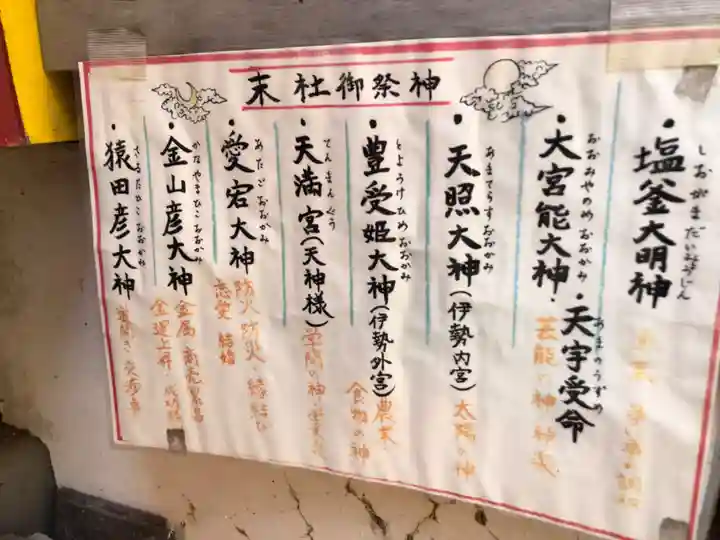 末社御祭神
・塩釜大明神
しおがまだいみょうじん
・大宮能大神・天宇受命
おおみやのめおおかみ
あまのうずめ
芸能の神
・天照大神(伊勢内宮)
あまてらすおおかみ
太陽の神
・豊受姫大神(伊勢外宮)
とようけひめおおかみ
農末
食物の神
・天満宮(天神様)
てんまんぐう
学問の神
・愛宕大神
あたごおおかみ
防火 防災・縁結び
恋愛 結婚
・金山彦大神
かなやまひこおおかみ
金属 商売繁昌
金運上昇
・猿田彦大神
さるたひこおおかみ
道開き 交通安